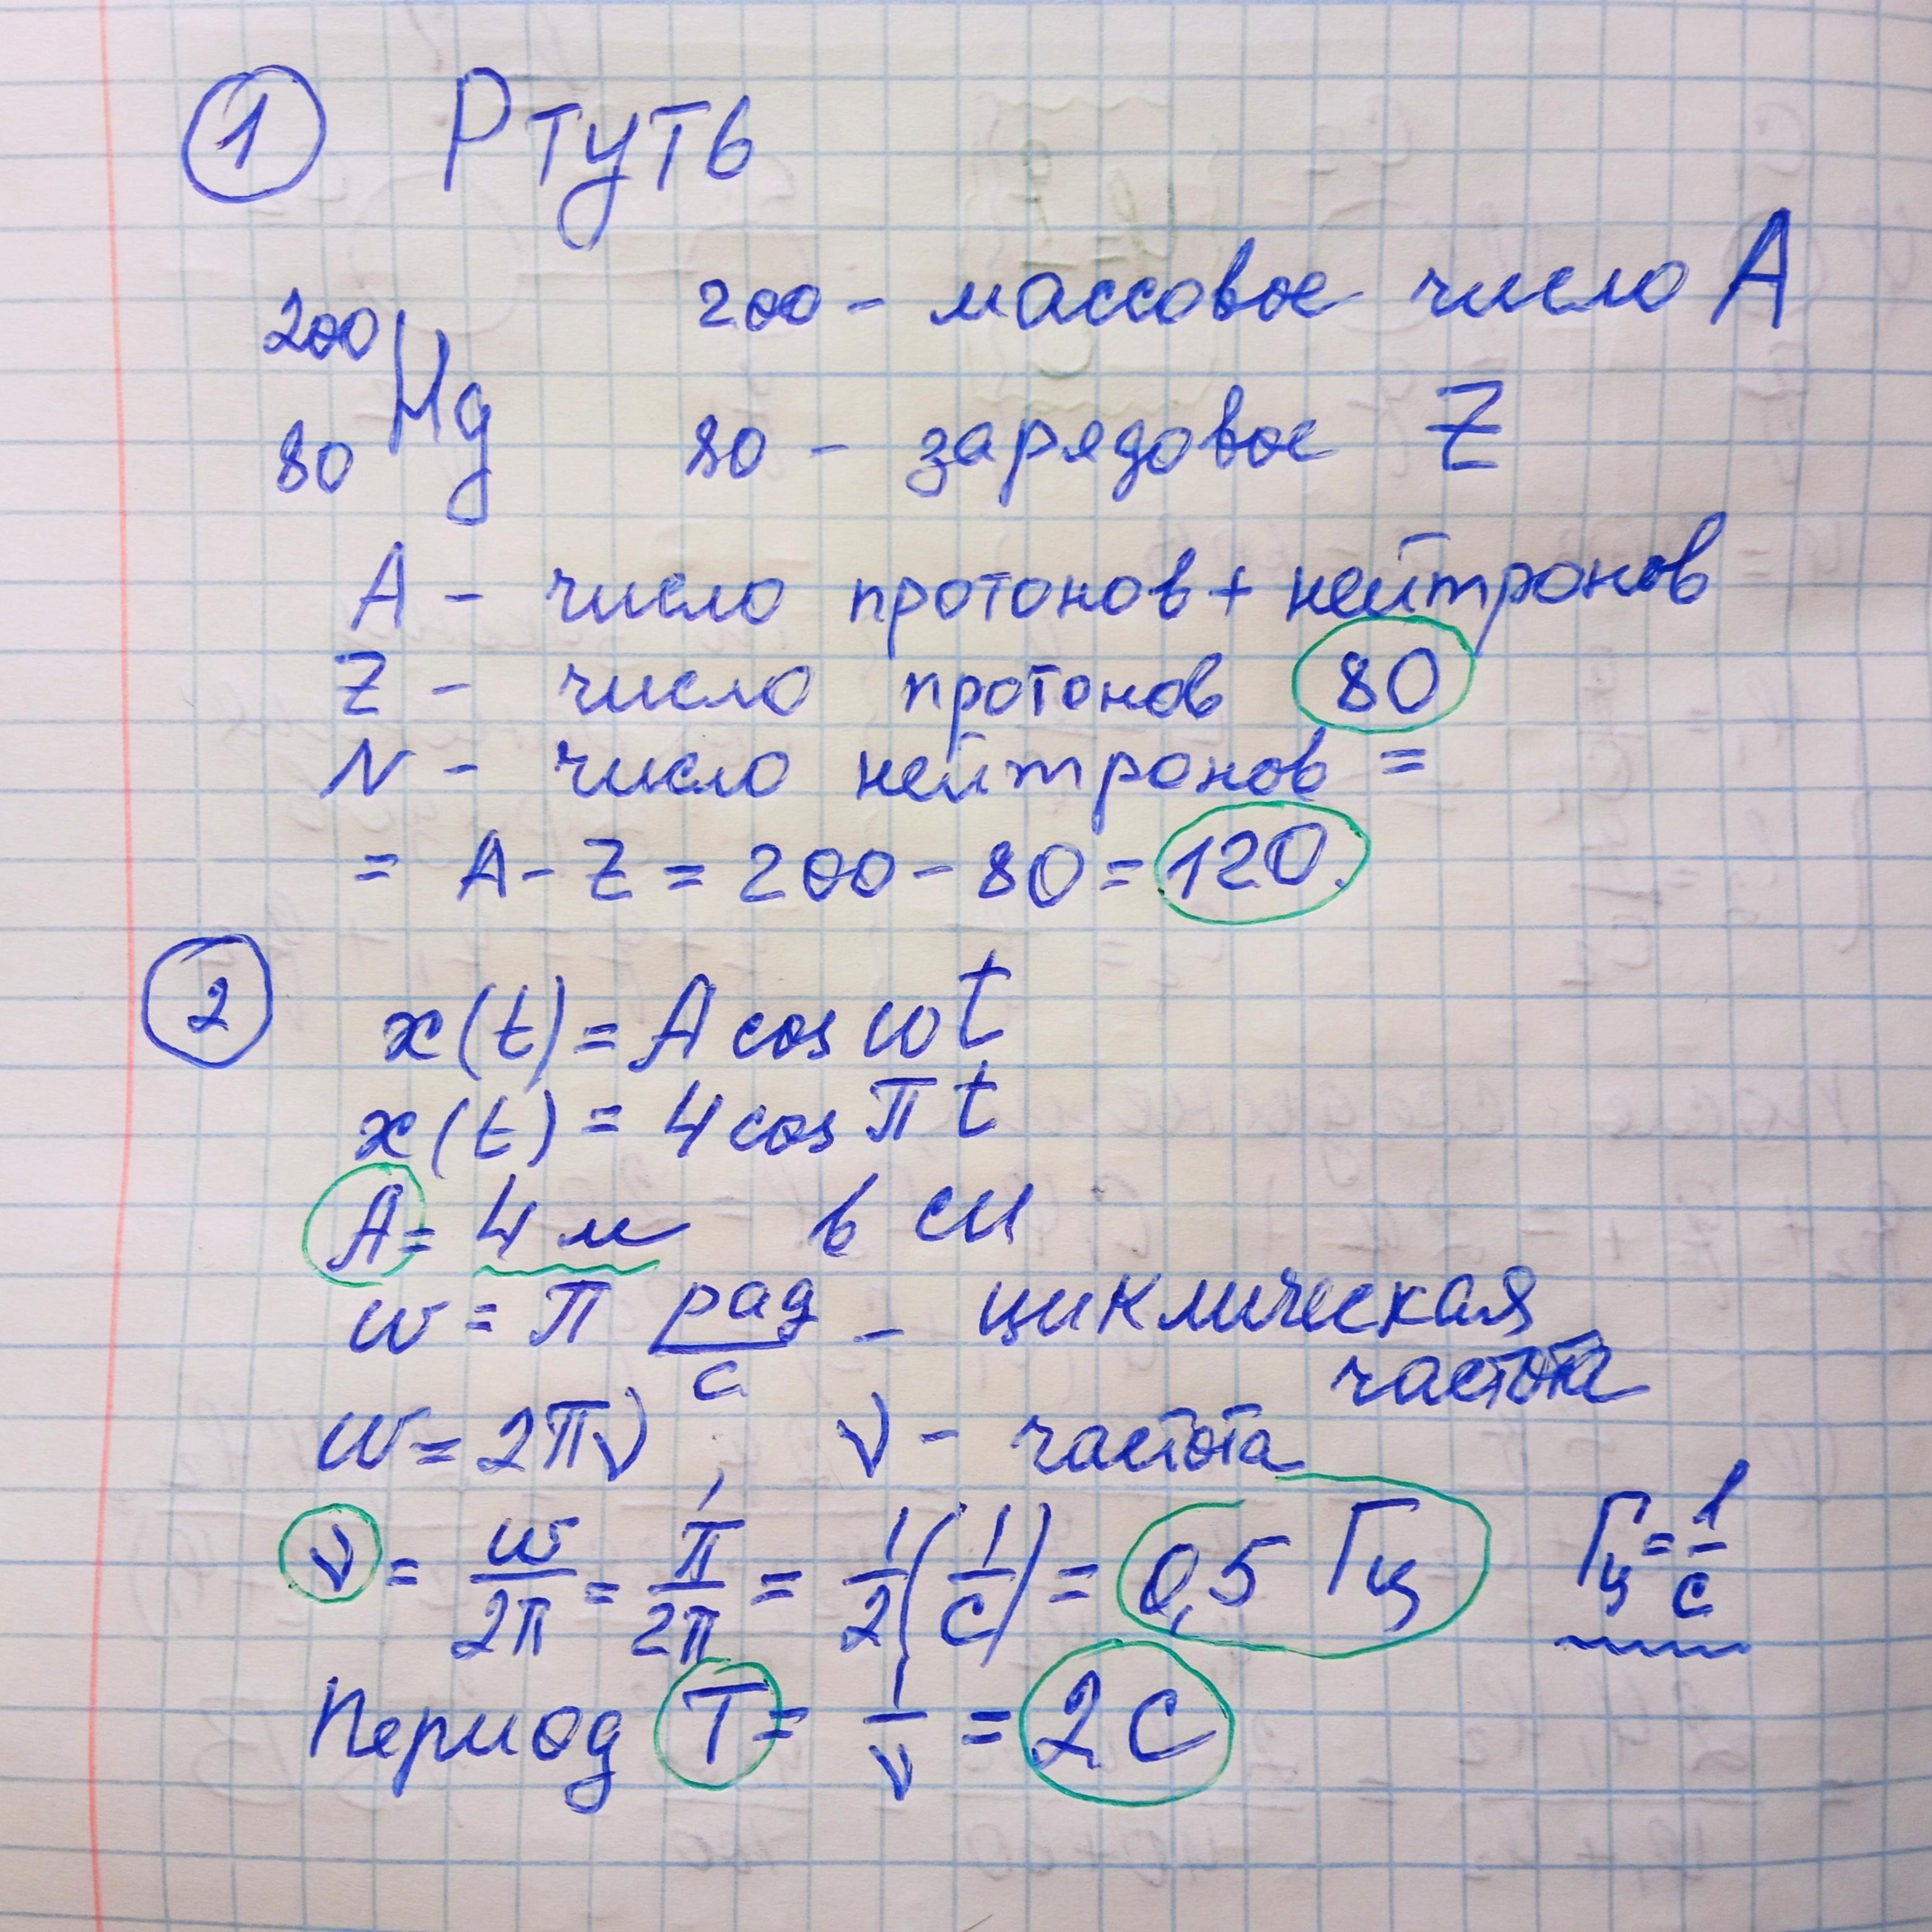 ① Ртуть
200 - массовое число A
²⁰⁰₈₀Hg
80 - зарядовое Z
A - число протонов + нейтронов
Z - число протонов 80
N - число нейтронов =
= A - Z = 200 - 80 = 120.
② x(t) = A cos ωt
x(t) = 4 cos π t
A = 4 м в СИ
ω = π рад/с - циклическая
частота
ω = 2πν, ν - частота
ν = ω/2π = π/2π = 1/2 (1/с) = 0,5 Гц Гц = 1/с
Период T = 1/ν = 2 с